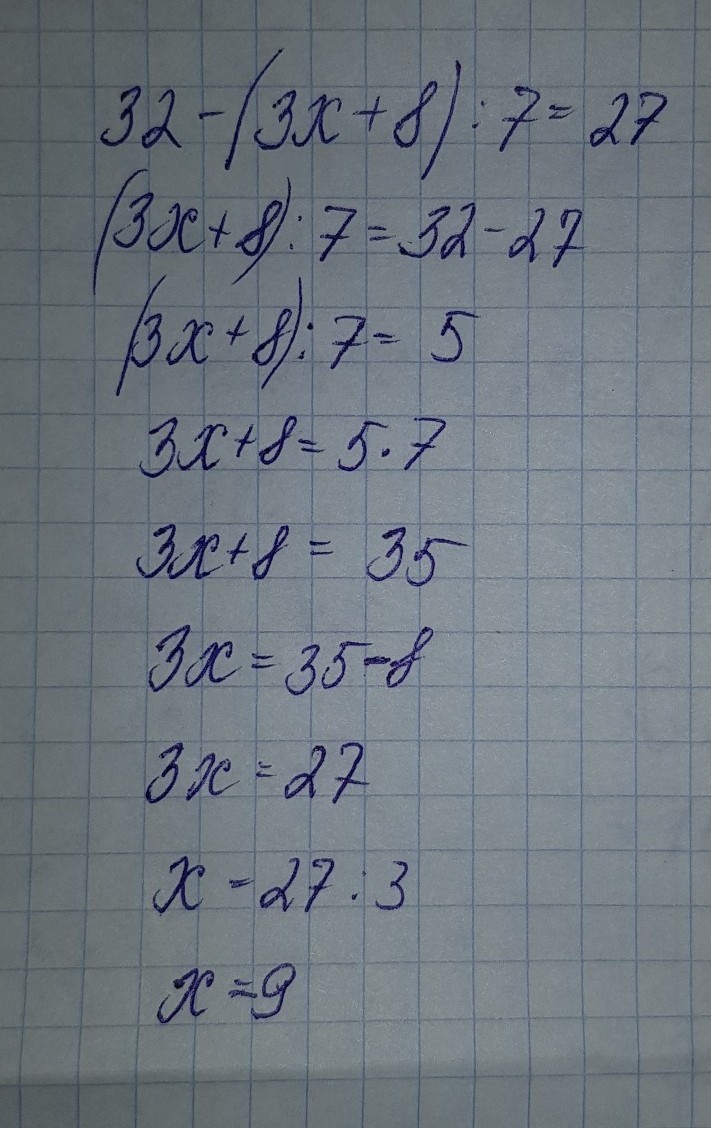 32-(3x+8):7=27
(3x+8):7=32-27
(3x+8):7=5
3x+8=5·7
3x+8=35
3x=35-8
3x=27
x=27:3
x=9